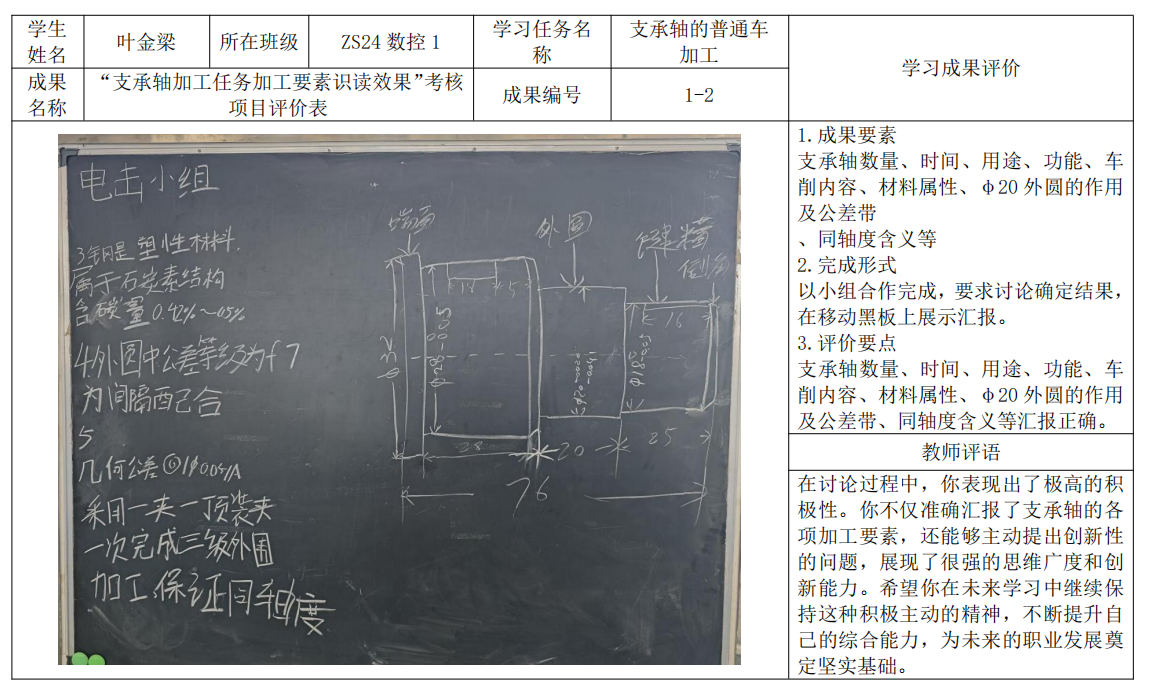 学生姓名 叶金梁 所在班级 ZS24 数控 1 学习任务名称 支承轴的普通车加工 学习成果评价
成果名称 “支承轴加工任务加工要素识读效果”考核项目评价表 成果编号 1-2
电击小组
3钢是塑性材料.
属于石炭素结构
含碳量0.42%~05%
4.外圆中公差等级为f7
为间隔配合
5
几何公差◎1ϕ0.05/A
采用一夹一顶装夹
一次完成三级外圆
加工.保证同轴度
端面
外圆
键槽
倒角
5
16
ϕ32
28
20
25
76
1.成果要素
支承轴数量、时间、用途、功能、车
削内容、材料属性、φ20 外圆的作用
及公差带
、同轴度含义等
2.完成形式
以小组合作完成，要求讨论确定结果，
在移动黑板上展示汇报。
3.评价要点
支承轴数量、时间、用途、功能、车
削内容、材料属性、φ20 外圆的作用
及公差带、同轴度含义等汇报正确。
教师评语
在讨论过程中，你表现出了极高的积
极性。你不仅准确汇报了支承轴的各
项加工要素，还能够主动提出创新性
的问题，展现了很强的思维广度和创
新能力。希望你在未来学习中继续保
持这种积极主动的精神，不断提升自
己的综合能力，为未来的职业发展奠
定坚实基础。